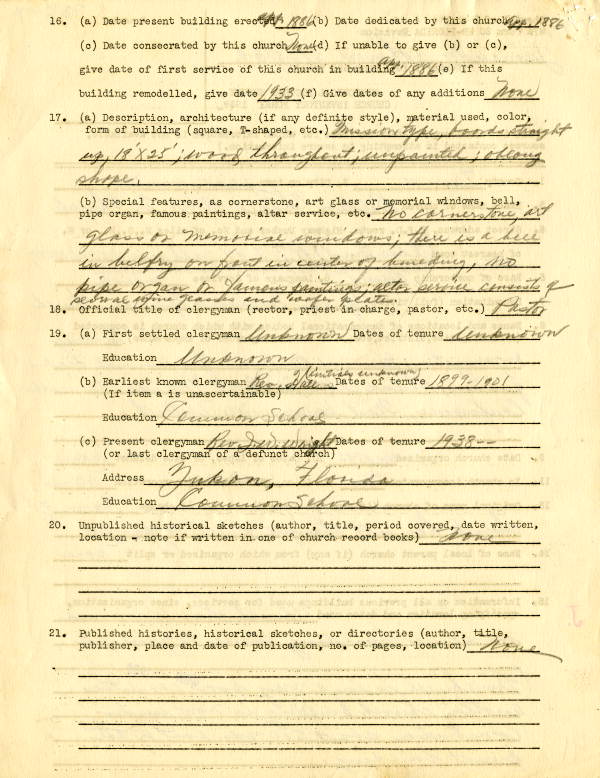 16. (a) Date present building erected Apr. 1886 (b) Date dedicated by this church Apr. 1886
(c) Date consecrated by this church None (d) If unable to give (b) or (c),
give date of first service of this church in building Apr. 1886 (e) If this
building remodelled, give date 1933 (f) Give dates of any additions None
17. (a) Description, architecture (if any definite style), material used, color,
form of building (square, T-shaped, etc.) Mission type, boards straight
up, 18'X25'; wood throughout; unpainted; oblong
shape.
(b) Special features, as cornerstone, art glass or memorial windows, bell,
pipe organ, famous paintings, altar service, etc. No cornerstone, art
glass or memorial windows; there is a bell
in belfry on front in center of building, no
pipe organ or famous paintings; altar service consists of
several wine glasses and wafer plates.
18. Official title of clergyman (rector, priest in charge, pastor, etc.) Pastor
19. (a) First settled clergyman Unknown Dates of tenure Unknown
Education Unknown
(b) Earliest known clergyman Rev. (initials unknown) Dates of tenure 1899-1901
(If item a is unascertainable)
Education Common School
(c) Present clergyman Rev. Wright Dates of tenure 1938--
(or last clergyman of a defunct church)
Address Yukon, Florida
Education Common School
20. Unpublished historical sketches (author, title, period covered, date written,
location - note if written in one of church record books) None
21. Published histories, historical sketches, or directories (author, title,
publisher, place and date of publication, no. of pages, location) None